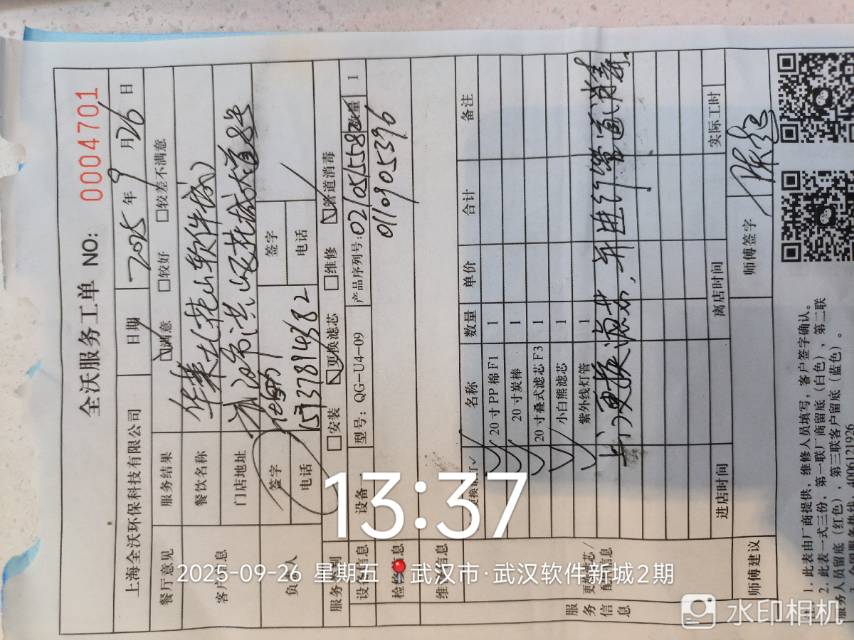 全沃服务工单 NO: 0004701
上海全沃环保科技有限公司 日期 2025 年 9 月 26 日
餐厅意见 服务结果 ☑满意 □较好 □较差不满意
客户信息 餐饮名称 华莱士(花山软件城)
门店地址 武汉市洪山区花城大道8号
负责人 签字 签字
电话 15337814382 电话
服务 □安装 ☑更换滤芯 □维修 ☑管道消毒
设备信息 设备 型号: QG-U4-09 产品序列号: 数量 1
0110905396
名称 数量 单价 合计 备注
20 寸 PP 棉 F1 1
20 寸炭棒 1
20 寸叠式滤芯 F3 1
小白熊滤芯 1
紫外线灯管 1
上门更换滤芯,并进行管道消毒。
服务信息
进店时间 离店时间 实际工时
师傅建议 师傅签字
1. 此表由厂商提供,维修人员填写,客户签字确认。
2. 此表一式三份,第一联厂商留底(白色),第二联
服务人员留底(红色),第三联客户留底(蓝色)。
4006121926
13:37
2025-09-26 星期五 武汉市·武汉软件新城2期
水印相机